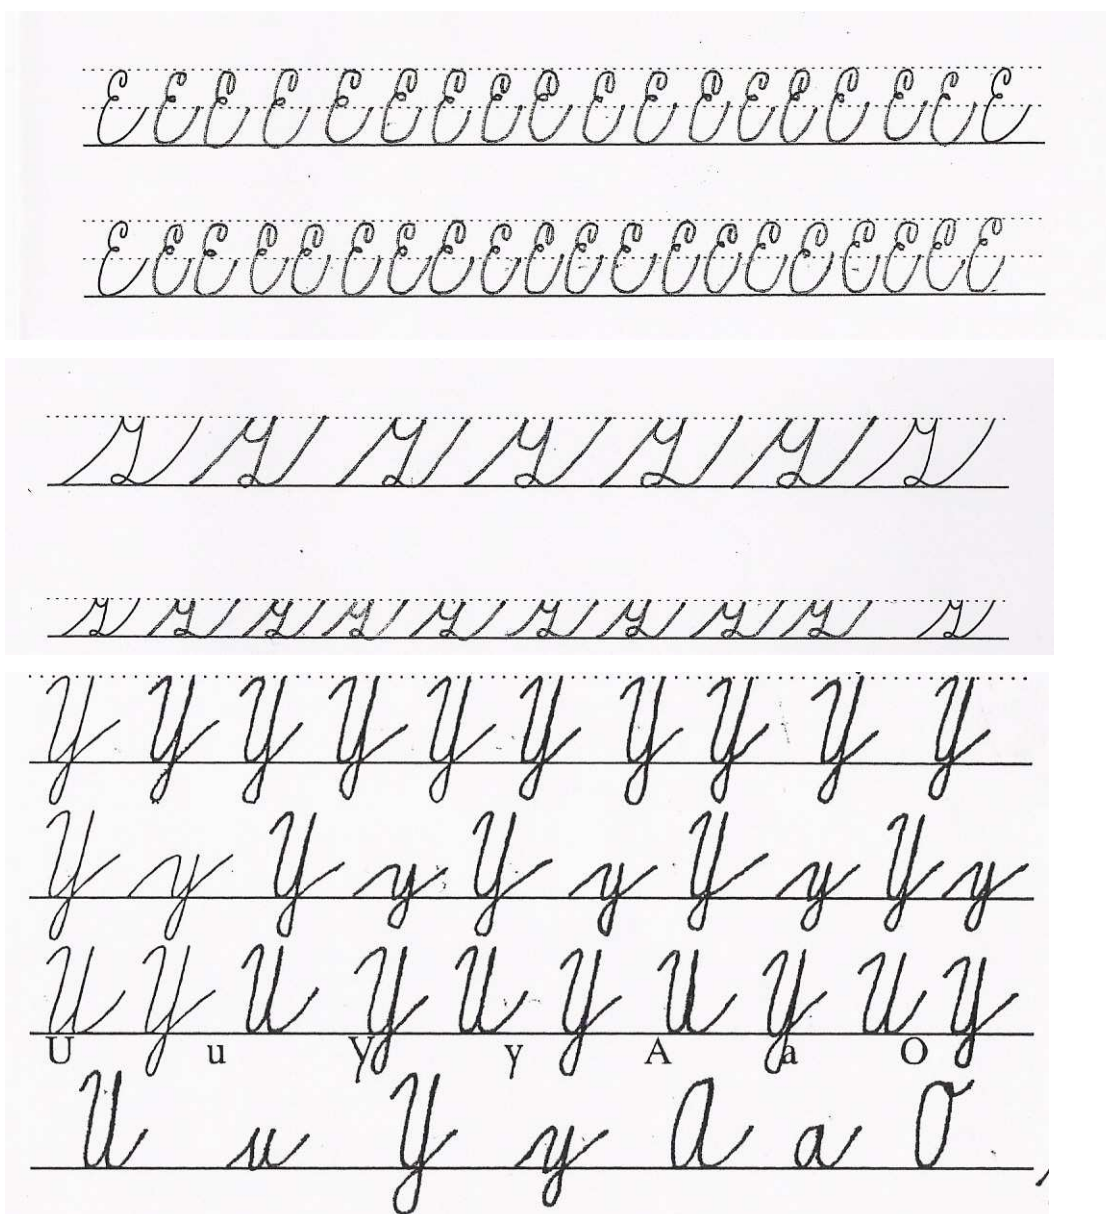 E E E E E E E E E E E E E E E E E E
E E E E E E E E E E E E E E E E E E E E
Y Y Y Y Y Y Y Y Y Y
Y y Y y Y y Y y Y y
U Y U Y U Y U Y U Y
U u Y y A a O
U u Y y A a O